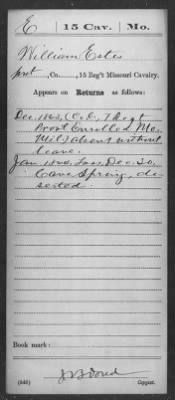 E 15 Cav. Mo.
William Estes
pvt, Co. , 15 Reg't Missouri Cavalry.
Appears on Returns as follows:
Dec. 1863, (Co. D, 7 Regt
Prov'l Enrolled Mo.
Mil.) absent without
leave.
Jan. 1864, Dec. 20,
Cave Spring, de-
serted.
Book mark:
(546) Copyist.